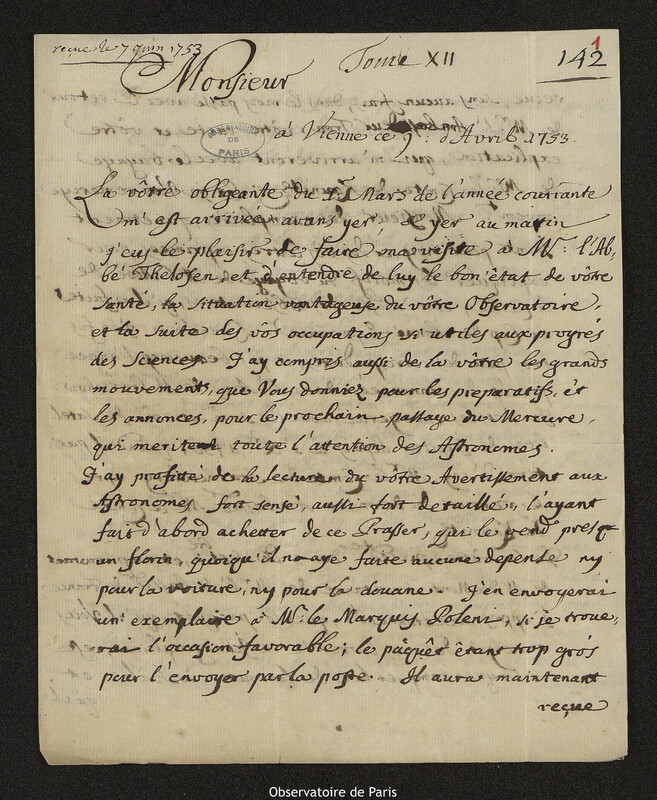 reçue le 7 juin 1753
Tome XII
142
1
Monsieur
OBSERVATOIRE DE PARIS
à Vienne ce 9: d'Avril 1753.
La vôtre obligeante du 1r Mars de l'année courrante
m'est arrivée avans yer; et yer au matin
j'eus le plaisir de faire ma visite à Mr: l'Ab,
bé Thelosen, et d'entendre de luy le bon état de vôtre
santé, la situation vantageuse du vôtre Observatoire,
et la suite des vôs occupations si utiles aux progrés
des Sciences. J'ay compris aussi de la vôtre les grands
mouvements, que Vous donniez pour les preparatifs, et
les annonces, pour le prochain passage du Mercure,
qui meritent toute l'attention des Astronomes.
J'ay profitté de la lecture du vôtre Avertissement aux
Astronomes fort sensé, aussi fort detaillé, l'ayant
fait d'abord achetter de ce Prasser, qui le vend presq
un florin, quoiqu'il n'aye faite aucune depense ny
pour la voiture, ny pour la douane. J'en envoyerai
un' exemplaire à Mr: le Marquis Poleni, si je troue,
rai l'occasion favorable; le pâquêt êtant trop grós
pour l'envoyer par la poste. Il aura maintenant
reçue
Observatoire de Paris